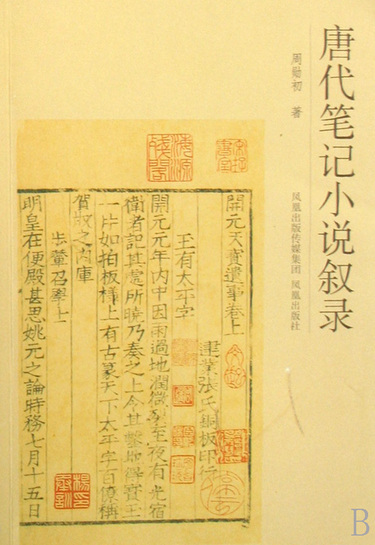 唐代笔记小说叙录
周勋初 著
凤凰出版传媒集团 凤凰出版社
開元天寶遺事卷上
建業張氏銅板印行
王有太平字
開元元年内中因雨過地潤微裂至夜有光宿
衛者記其處所曉乃奏之上令其鑿地得寶玉
一片如拍板樣上有古篆天下太平字百僚稱
賀收之内庫
步輦召學士
明皇在便殿甚思姚元之論時務七月十五日
B